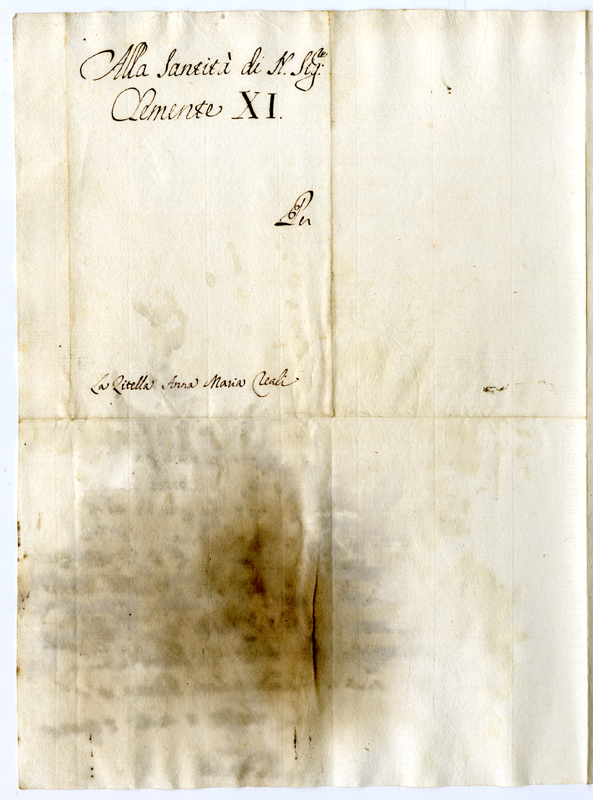 Alla Santità di N. Sig.re
Clemente XI.
Per
La Zitella Anna Maria Reali